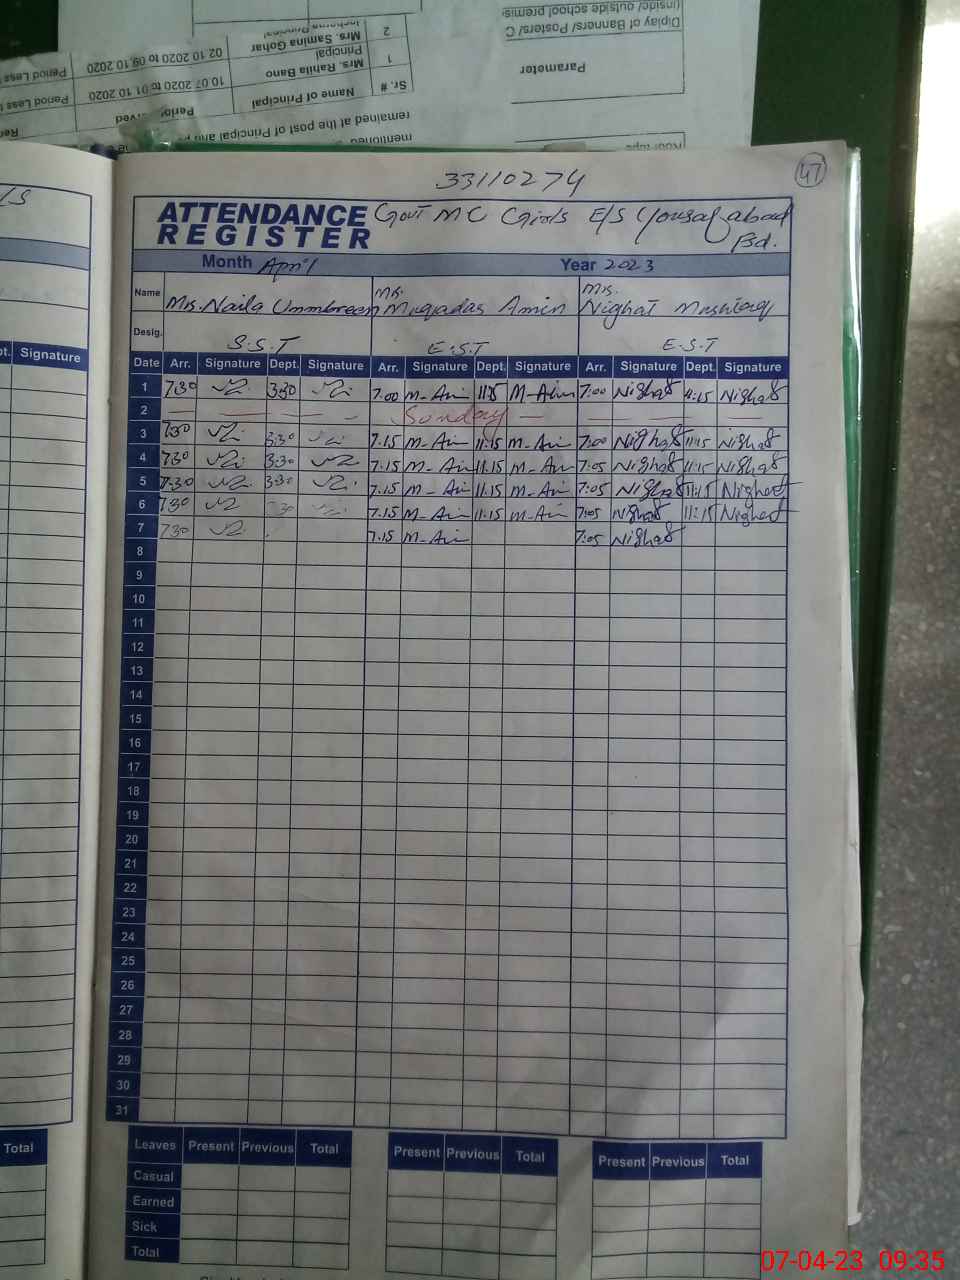 Diplay of Banners/ Posters/ C
(inside/ outside school premis
Parameter
remained at the post of Principal and
mentioned
Sr. # Name of Principal
1 Mrs. Rahila Bano Principal 10.07.2020 to 01.10.2020 Period Less t
2 Mrs. Samina Gohar 02.10.2020 to 09.10.2020 Period Less
Signature
Total
33110274
47
ATTENDANCE REGISTER
Govt MC Girls E/S Yousaf abad
Bd.
Month April Year 2023
Name Mrs. Naila Ummbreen Muqadas Amin Mrs. Nighat Mushtaq
Desig. S.S.T E.S.T E.S.T
Date Arr. Signature Dept. Signature Arr. Signature Dept. Signature Arr. Signature Dept. Signature
1 7:30 3:30 7:00 7:00 Nighat Nighat
2 Sunday
3 7:30 3:30 7:15 11:15 7:00 Nighat 11:15 Nighat
4 7:30 3:30 7:15 11:15 7:05 Nighat 11:15 Nighat
5 7:30 3:30 7:15 11:15 7:05 Nighat 11:15 Nighat
6 7:30 7:15 11:15 7:05 Nighat 11:15 Nighat
7 7:30 7:15 7:05 Nighat
8
9
10
11
12
13
14
15
16
17
18
19
20
21
22
23
24
25
26
27
28
29
30
31
Leaves Present Previous Total Present Previous Total Present Previous Total
Casual
Earned
Sick
Total
07-04-23 09:35